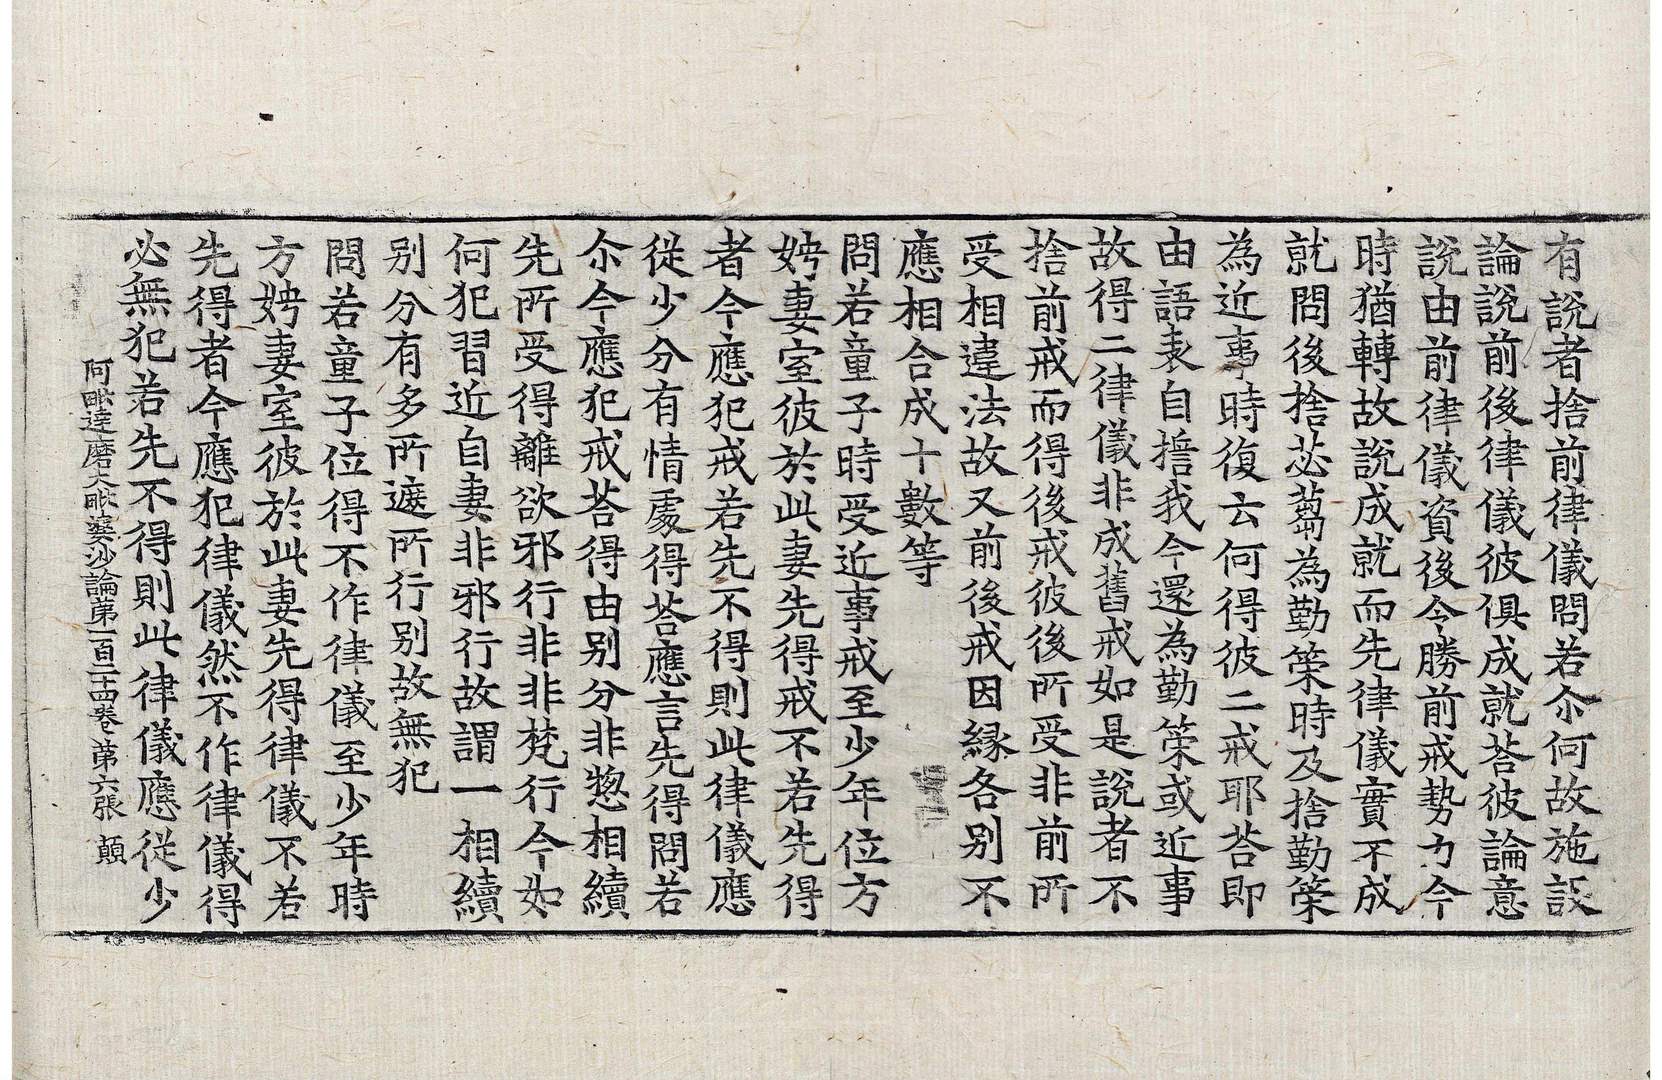 有說者捨前律儀問若尒何故施設
論說前後律儀彼俱成就荅彼論意
說由前律儀資後令勝前戒勢力今
時猶轉故說成就而先律儀實不成
就問後捨苾蒭為勤策時及捨勤策
為近事時復云何得彼二戒耶荅即
由語表自誓我今還為勤策或近事
故得二律儀非成舊戒如是說者不
捨前戒而得後戒彼後所受非前所
受相違法故又前後戒因緣各別不
應相合成十數等
問若童子時受近事戒至少年位方
娉妻室彼於此妻先得戒不若先得
者今應犯戒若先不得則此律儀應
從少分有情處得荅應言先得問若
尒今應犯戒荅得由別分非惣相續
先所受得離欲邪行非非梵行今如
何犯習近自妻非邪行故謂一相續
別分有多所遮所行別故無犯
問若童子位得不作律儀至少年時
方娉妻室彼於此妻先得律儀不若
先得者今應犯律儀然不作律儀得
必無犯若先不得則此律儀應從少
阿毗達磨大毗婆沙論第一百二十四卷 第六張 顛